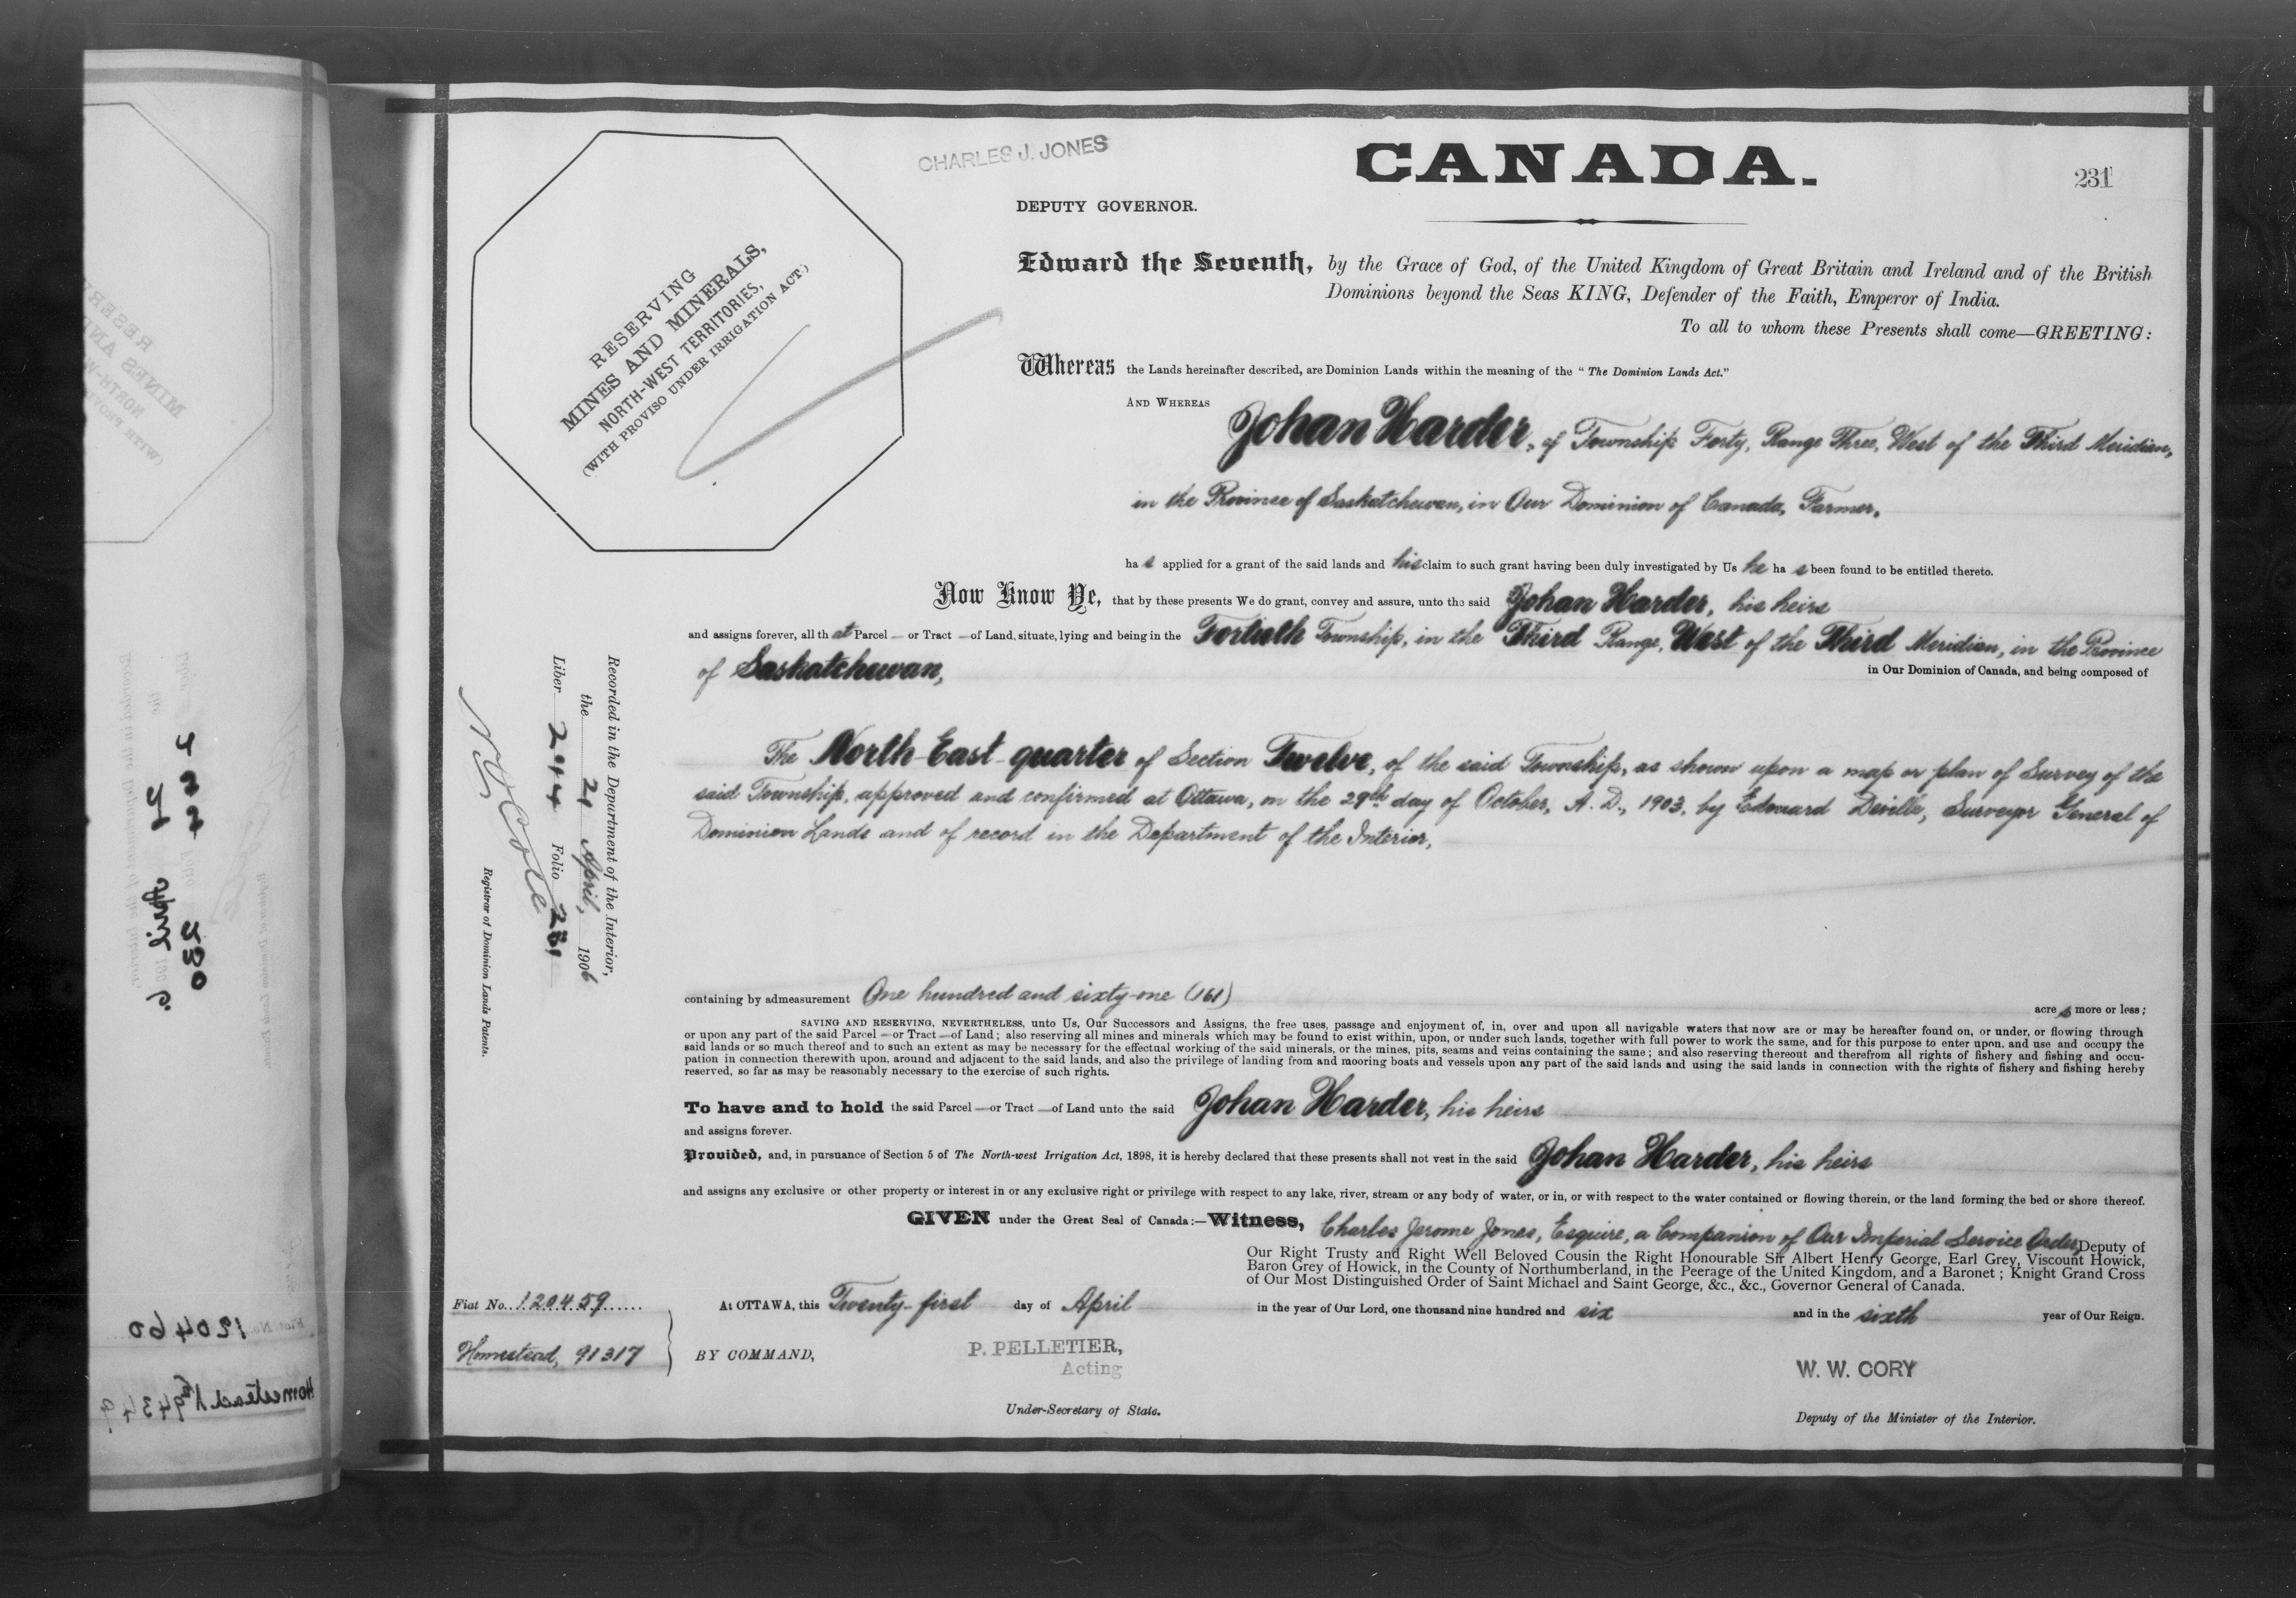 CHARLES J. JONES
CANADA.
231
DEPUTY GOVERNOR.
RESERVING
MINES AND MINERALS,
NORTH-WEST TERRITORIES,
(WITH PROVISO UNDER IRRIGATION ACT.)
Edward the Seventh, by the Grace of God, of the United Kingdom of Great Britain and Ireland and of the British
Dominions beyond the Seas KING, Defender of the Faith, Emperor of India.
To all to whom these Presents shall come—GREETING:
Whereas the Lands hereinafter described, are Dominion Lands within the meaning of the "The Dominion Lands Act."
AND WHEREAS Johan Harder, of Township Forty, Range Three, West of the Third Meridian,
in the Province of Saskatchewan, in Our Dominion of Canada, Farmer,
ha s applied for a grant of the said lands and his claim to such grant having been duly investigated by Us he ha s been found to be entitled thereto.
Now Know Ye, that by these presents We do grant, convey and assure, unto the said Johan Harder, his heirs
and assigns forever, all th at Parcel — or Tract — of Land, situate, lying and being in the Fortieth Township, in the Third Range, West of the Third Meridian, in the Province
of Saskatchewan, in Our Dominion of Canada, and being composed of
The North East quarter of Section Twelve, of the said Township, as shown upon a map or plan of Survey of the
said Township, approved and confirmed at Ottawa, on the 29th day of October, A. D., 1903, by Edouard Deville, Surveyor General of
Dominion Lands and of record in the Department of the Interior,
Recorded in the Department of the Interior,
the 21 April, 1906
Liber 244 Folio 231
Registrar of Dominion Lands Patents.
containing by admeasurement One hundred and sixty-one (161) acre s more or less;
SAVING AND RESERVING, NEVERTHELESS, unto Us, Our Successors and Assigns, the free uses, passage and enjoyment of, in, over and upon all navigable waters that now are or may be hereafter found on, or under, or flowing through
or upon any part of the said Parcel — or Tract — of Land; also reserving all mines and minerals which may be found to exist within, upon, or under such lands, together with full power to work the same, and for this purpose to enter upon, and use and occupy the
said lands or so much thereof and to such an extent as may be necessary for the effectual working of the said minerals, or the mines, pits, seams and veins containing the same; and also reserving thereout and therefrom all rights of fishery and fishing and occu-
pation in connection therewith upon, around and adjacent to the said lands, and also the privilege of landing from and mooring boats and vessels upon any part of the said lands and using the said lands in connection with the rights of fishery and fishing hereby
reserved, so far as may be reasonably necessary to the exercise of such rights.
To have and to hold the said Parcel — or Tract — of Land unto the said Johan Harder, his heirs
and assigns forever.
Provided, and, in pursuance of Section 5 of The North-west Irrigation Act, 1898, it is hereby declared that these presents shall not vest in the said Johan Harder, his heirs
and assigns any exclusive or other property or interest in or any exclusive right or privilege with respect to any lake, river, stream or any body of water, or in, or with respect to the water contained or flowing therein, or the land forming the bed or shore thereof.
GIVEN under the Great Seal of Canada:—Witness, Charles Jerome Jones, Esquire, a Companion of Our Imperial Service Order, Deputy of
Our Right Trusty and Right Well Beloved Cousin the Right Honourable Sir Albert Henry George, Earl Grey, Viscount Howick,
Baron Grey of Howick, in the County of Northumberland, in the Peerage of the United Kingdom, and a Baronet; Knight Grand Cross
of Our Most Distinguished Order of Saint Michael and Saint George, &c., &c., Governor General of Canada.
Fiat No. 120459
At OTTAWA, this Twenty-first day of April in the year of Our Lord, one thousand nine hundred and six and in the sixth year of Our Reign.
Homestead, 91317
BY COMMAND,
P. PELLETIER,
Acting
Under-Secretary of State.
W. W. CORY
Deputy of the Minister of the Interior.